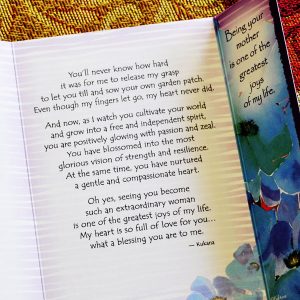 You'll never know how hard
it was for me to release my grasp
to let you till and sow your own garden patch.
Even though my fingers let go, my heart never did.
And now, as I watch you cultivate your world
and grow into a free and independent spirit,
you are positively glowing with passion and zeal.
You have blossomed into the most
glorious vision of strength and resilience.
At the same time, you have nurtured
a gentle and compassionate heart.
Oh yes, seeing you become
such an extraordinary woman
is one of the greatest joys of my life.
My heart is so full of love for you...
what a blessing you are to me.
— Kukana
Being your
mother
is one of the
greatest
joys
of my life.